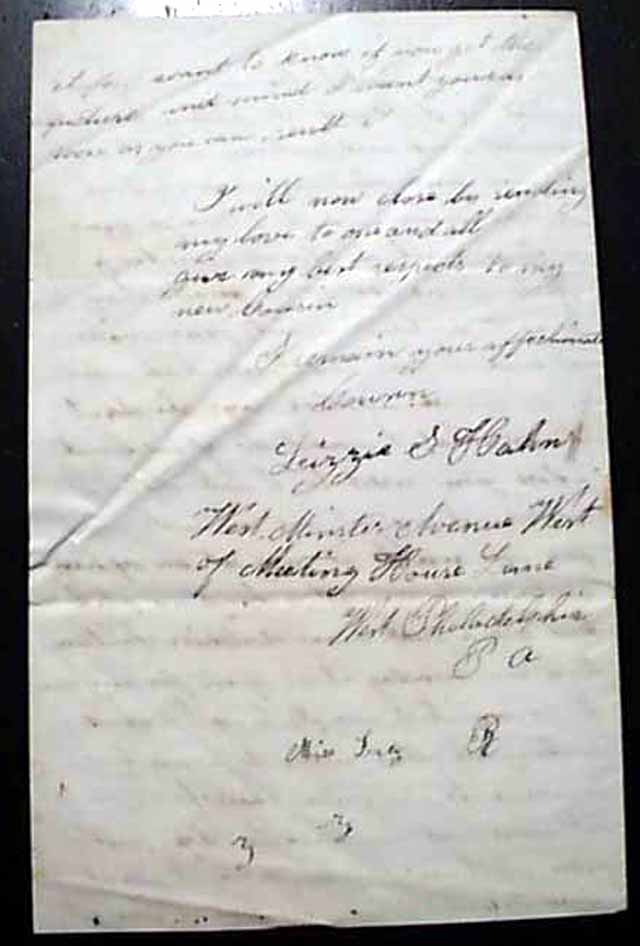 want to know if you get the
picture and mind I want yours as
soon as you can
I will now close by sending
my love to one and all
give my best respects to my
new Cousin
I remain your affectionate
Cousin
Lizzie S Hahn
West Minster Avenue West
of Meeting House Lane
West Philadelphia
P a
Miss